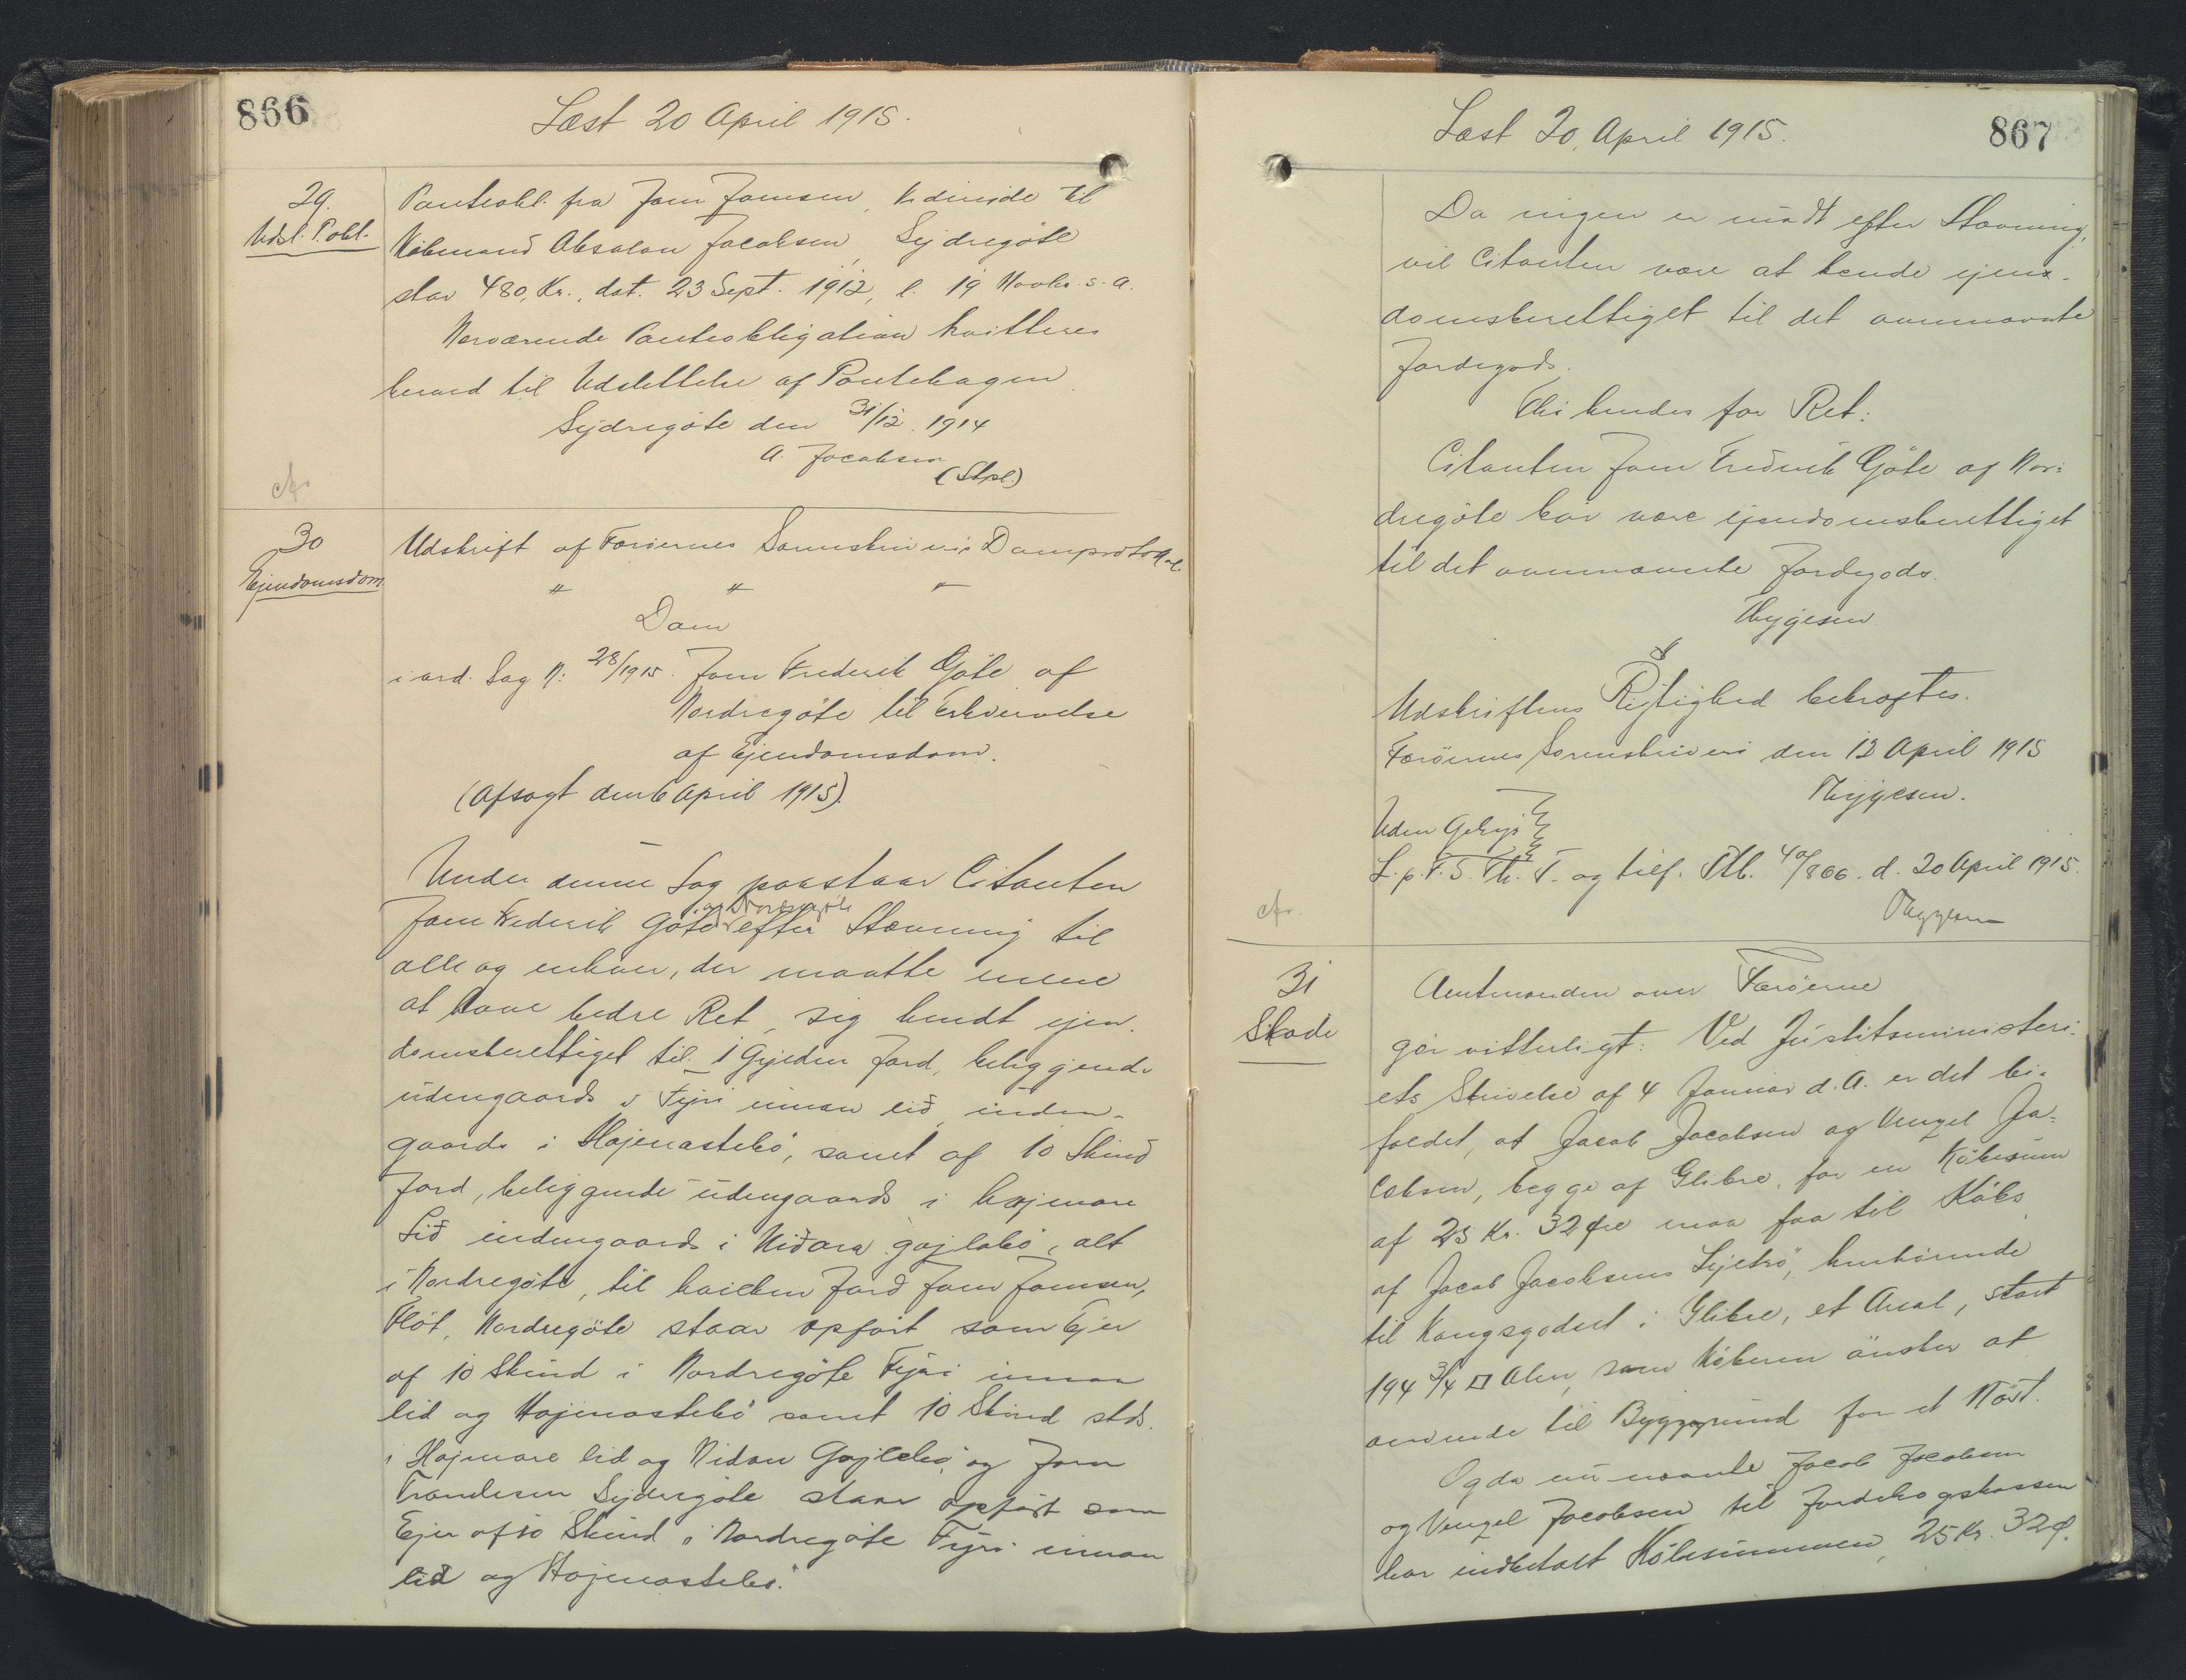 866
Læst 20 April 1915.
29.
Udsl. P.obl.
Panteobl. fra Joen Joensen, til
Købmand Absalon Jacobsen, Sydregöte
stor 480, Kr., dat. 23 Sept. 1912, l. 19 Novbr. s. a.
Nærværende Panteobligation kvitteres
herved til Udslettelse af Pantebogen.
Sydregöte den 31/12. 1914
A. Jacobsen
(Stpl.)
30
Ejendomsdom
Udskrift af Færöernes Sorenskriveris Domprotokol.
" " "
Dom
i ord. Sag N: 28/1915. Joen Frederik Göte af
Nordregöte til Erhvervelse
af Ejendomsdom.
(Afsagt den 6 April 1915).
Under denne Sag paastaar Citanten
Joen Frederik Göte af Nordregöte efter Stævning til
alle og enhver, der maatte mene
at have bedre Ret, sig kendt ejen-
domsberettiget til 1 Gylden Jord, beliggende
udengaards i Fyri innan lid, inden-
gaards i Hojenastebö, samt af 10 Skind
Jord, beliggende udengaards i hojmare
Lid indengaards i Nidara gojlabö, alt
i Nordregöte, til hvilken Jord Joen Joensen,
Flöt, Nordregöte staar opført som Ejer
af 10 Skind i Nordregöte Fyri innan
lid og Hojenastebö samt 10 Skind stds.
i Hojmare lid og Nidan Gojlebö, og Joen
Sydregöte staar opført som
Ejer af 10 Skind i Nordregöte Fyri innan
lid og Hojenastebö.
Læst 20. April 1915.
867
Da ingen er mødt efter Stævning,
vil Citanten være at kende ejen-
domsberettiget til det ovennævnte
Jordegods.
Thi kendes for Ret:
Citanten Joen Frederik Göte af Nor-
dregöte bør være ejendomsberettiget
til det ovennævnte Jordegods.
Thygesen
Udskriftens Rigtighed bekræftes.
Færöernes Sorenskriveri den 13 April 1915
Thygesen.
Uden Gebyr
L. p. F. S. Th. T. og tilf. Ptb. d. 20 April 1915.
Thygesen
31
Skøde
Amtmanden over Færöerne
gør vitterligt: Ved Justitsministeri-
ets Skrivelse af 4 Januar d. A. er det bi-
faldet, at Jacob Jacobsen og Venzel Ja-
cobsen, begge af Glibre, for en Købesum
af 25 Kr. 32 Øre maa faa til Købs
af Jacob Jacobsens henhørende
til Kongsgodset i Glibre, et Areal, stort
194 3/4 □ Alen, som Køberen ønsker at
anvende til Byggegrund for et Nøst.
Og da nu nævnte Jacob Jacobsen
og Venzel Jacobsen til Jordebogskassen
har indbetalt Købesummen, 25 Kr. 32 Ø.